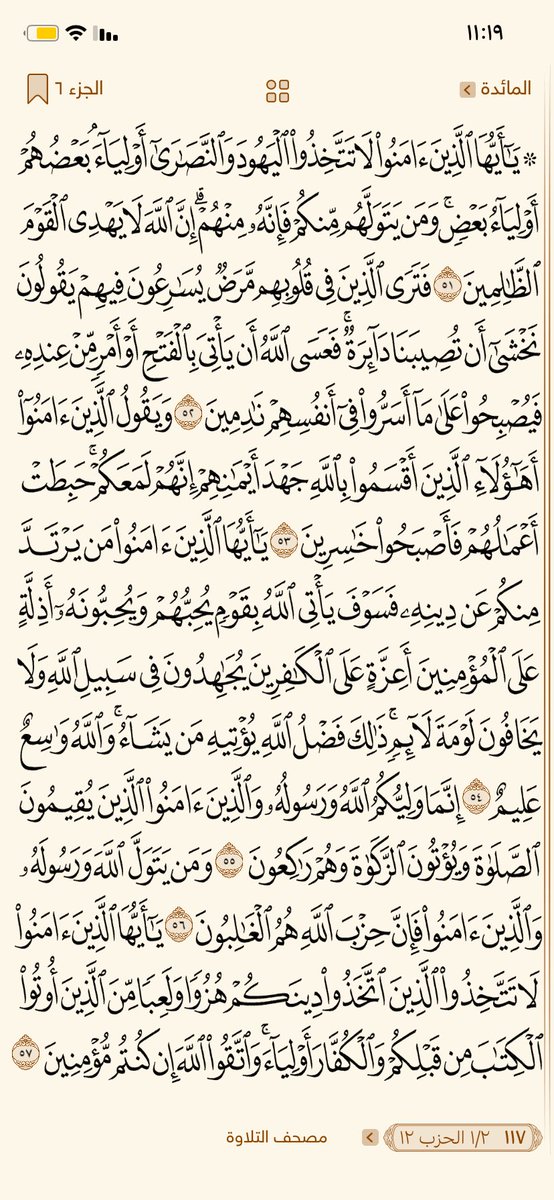 ١١:١٩
المائدة
الجزء ٦
۞ يَـٰٓأَيُّهَا ٱلَّذِينَ ءَامَنُوا۟ لَا تَتَّخِذُوا۟ ٱلْيَهُودَ وَٱلنَّصَـٰرَىٰٓ أَوْلِيَآءَۘ بَعْضُهُمْ
أَوْلِيَآءُ بَعْضٍۚ وَمَن يَتَوَلَّهُم مِّنكُمْ فَإِنَّهُۥ مِنْهُمْۗ إِنَّ ٱللَّهَ لَا يَهْدِى ٱلْقَوْمَ
ٱلظَّـٰلِمِينَ ٥١ فَتَرَى ٱلَّذِينَ فِى قُلُوبِهِم مَّرَضٌ يُسَـٰرِعُونَ فِيهِمْ يَقُولُونَ
نَخْشَىٰٓ أَن تُصِيبَنَا دَآئِرَةٌۚ فَعَسَى ٱللَّهُ أَن يَأْتِىَ بِٱلْفَتْحِ أَوْ أَمْرٍ مِّنْ عِندِهِۦ
فَيُصْبِحُوا۟ عَلَىٰ مَآ أَسَرُّوا۟ فِىٓ أَنفُسِهِمْ نَـٰدِمِينَ ٥٢ وَيَقُولُ ٱلَّذِينَ ءَامَنُوٓا۟
أَهَـٰٓؤُلَآءِ ٱلَّذِينَ أَقْسَمُوا۟ بِٱللَّهِ جَهْدَ أَيْمَـٰنِهِمْ إِنَّهُمْ لَمَعَكُمْۚ حَبِطَتْ
أَعْمَـٰلُهُمْ فَأَصْبَحُوا۟ خَـٰسِرِينَ ٥٣ يَـٰٓأَيُّهَا ٱلَّذِينَ ءَامَنُوا۟ مَن يَرْتَدَّ
مِنكُمْ عَن دِينِهِۦ فَسَوْفَ يَأْتِى ٱللَّهُ بِقَوْمٍ يُحِبُّهُمْ وَيُحِبُّونَهُۥٓ أَذِلَّةٍ
عَلَى ٱلْمُؤْمِنِينَ أَعِزَّةٍ عَلَى ٱلْكَـٰفِرِينَ يُجَـٰهِدُونَ فِى سَبِيلِ ٱللَّهِ وَلَا
يَخَافُونَ لَوْمَةَ لَآئِمٍۚ ذَٰلِكَ فَضْلُ ٱللَّهِ يُؤْتِيهِ مَن يَشَآءُۚ وَٱللَّهُ وَٰسِعٌ
عَلِيمٌ ٥٤ إِنَّمَا وَلِيُّكُمُ ٱللَّهُ وَرَسُولُهُۥ وَٱلَّذِينَ ءَامَنُوا۟ ٱلَّذِينَ يُقِيمُونَ
ٱلصَّلَوٰةَ وَيُؤْتُونَ ٱلزَّكَوٰةَ وَهُمْ رَٰكِعُونَ ٥٥ وَمَن يَتَوَلَّ ٱللَّهَ وَرَسُولَهُۥ
وَٱلَّذِينَ ءَامَنُوا۟ فَإِنَّ حِزْبَ ٱللَّهِ هُمُ ٱلْغَـٰلِبُونَ ٥٦ يَـٰٓأَيُّهَا ٱلَّذِينَ ءَامَنُوا۟
لَا تَتَّخِذُوا۟ ٱلَّذِينَ ٱتَّخَذُوا۟ دِينَكُمْ هُزُوًا وَلَعِبًا مِّنَ ٱلَّذِينَ أُوتُوا۟
ٱلْكِتَـٰبَ مِن قَبْلِكُمْ وَٱلْكُفَّارَ أَوْلِيَآءَۚ وَٱتَّقُوا۟ ٱللَّهَ إِن كُنتُم مُّؤْمِنِينَ ٥٧
١١٧ ١/٢ الحزب ١٢
مصحف التلاوة